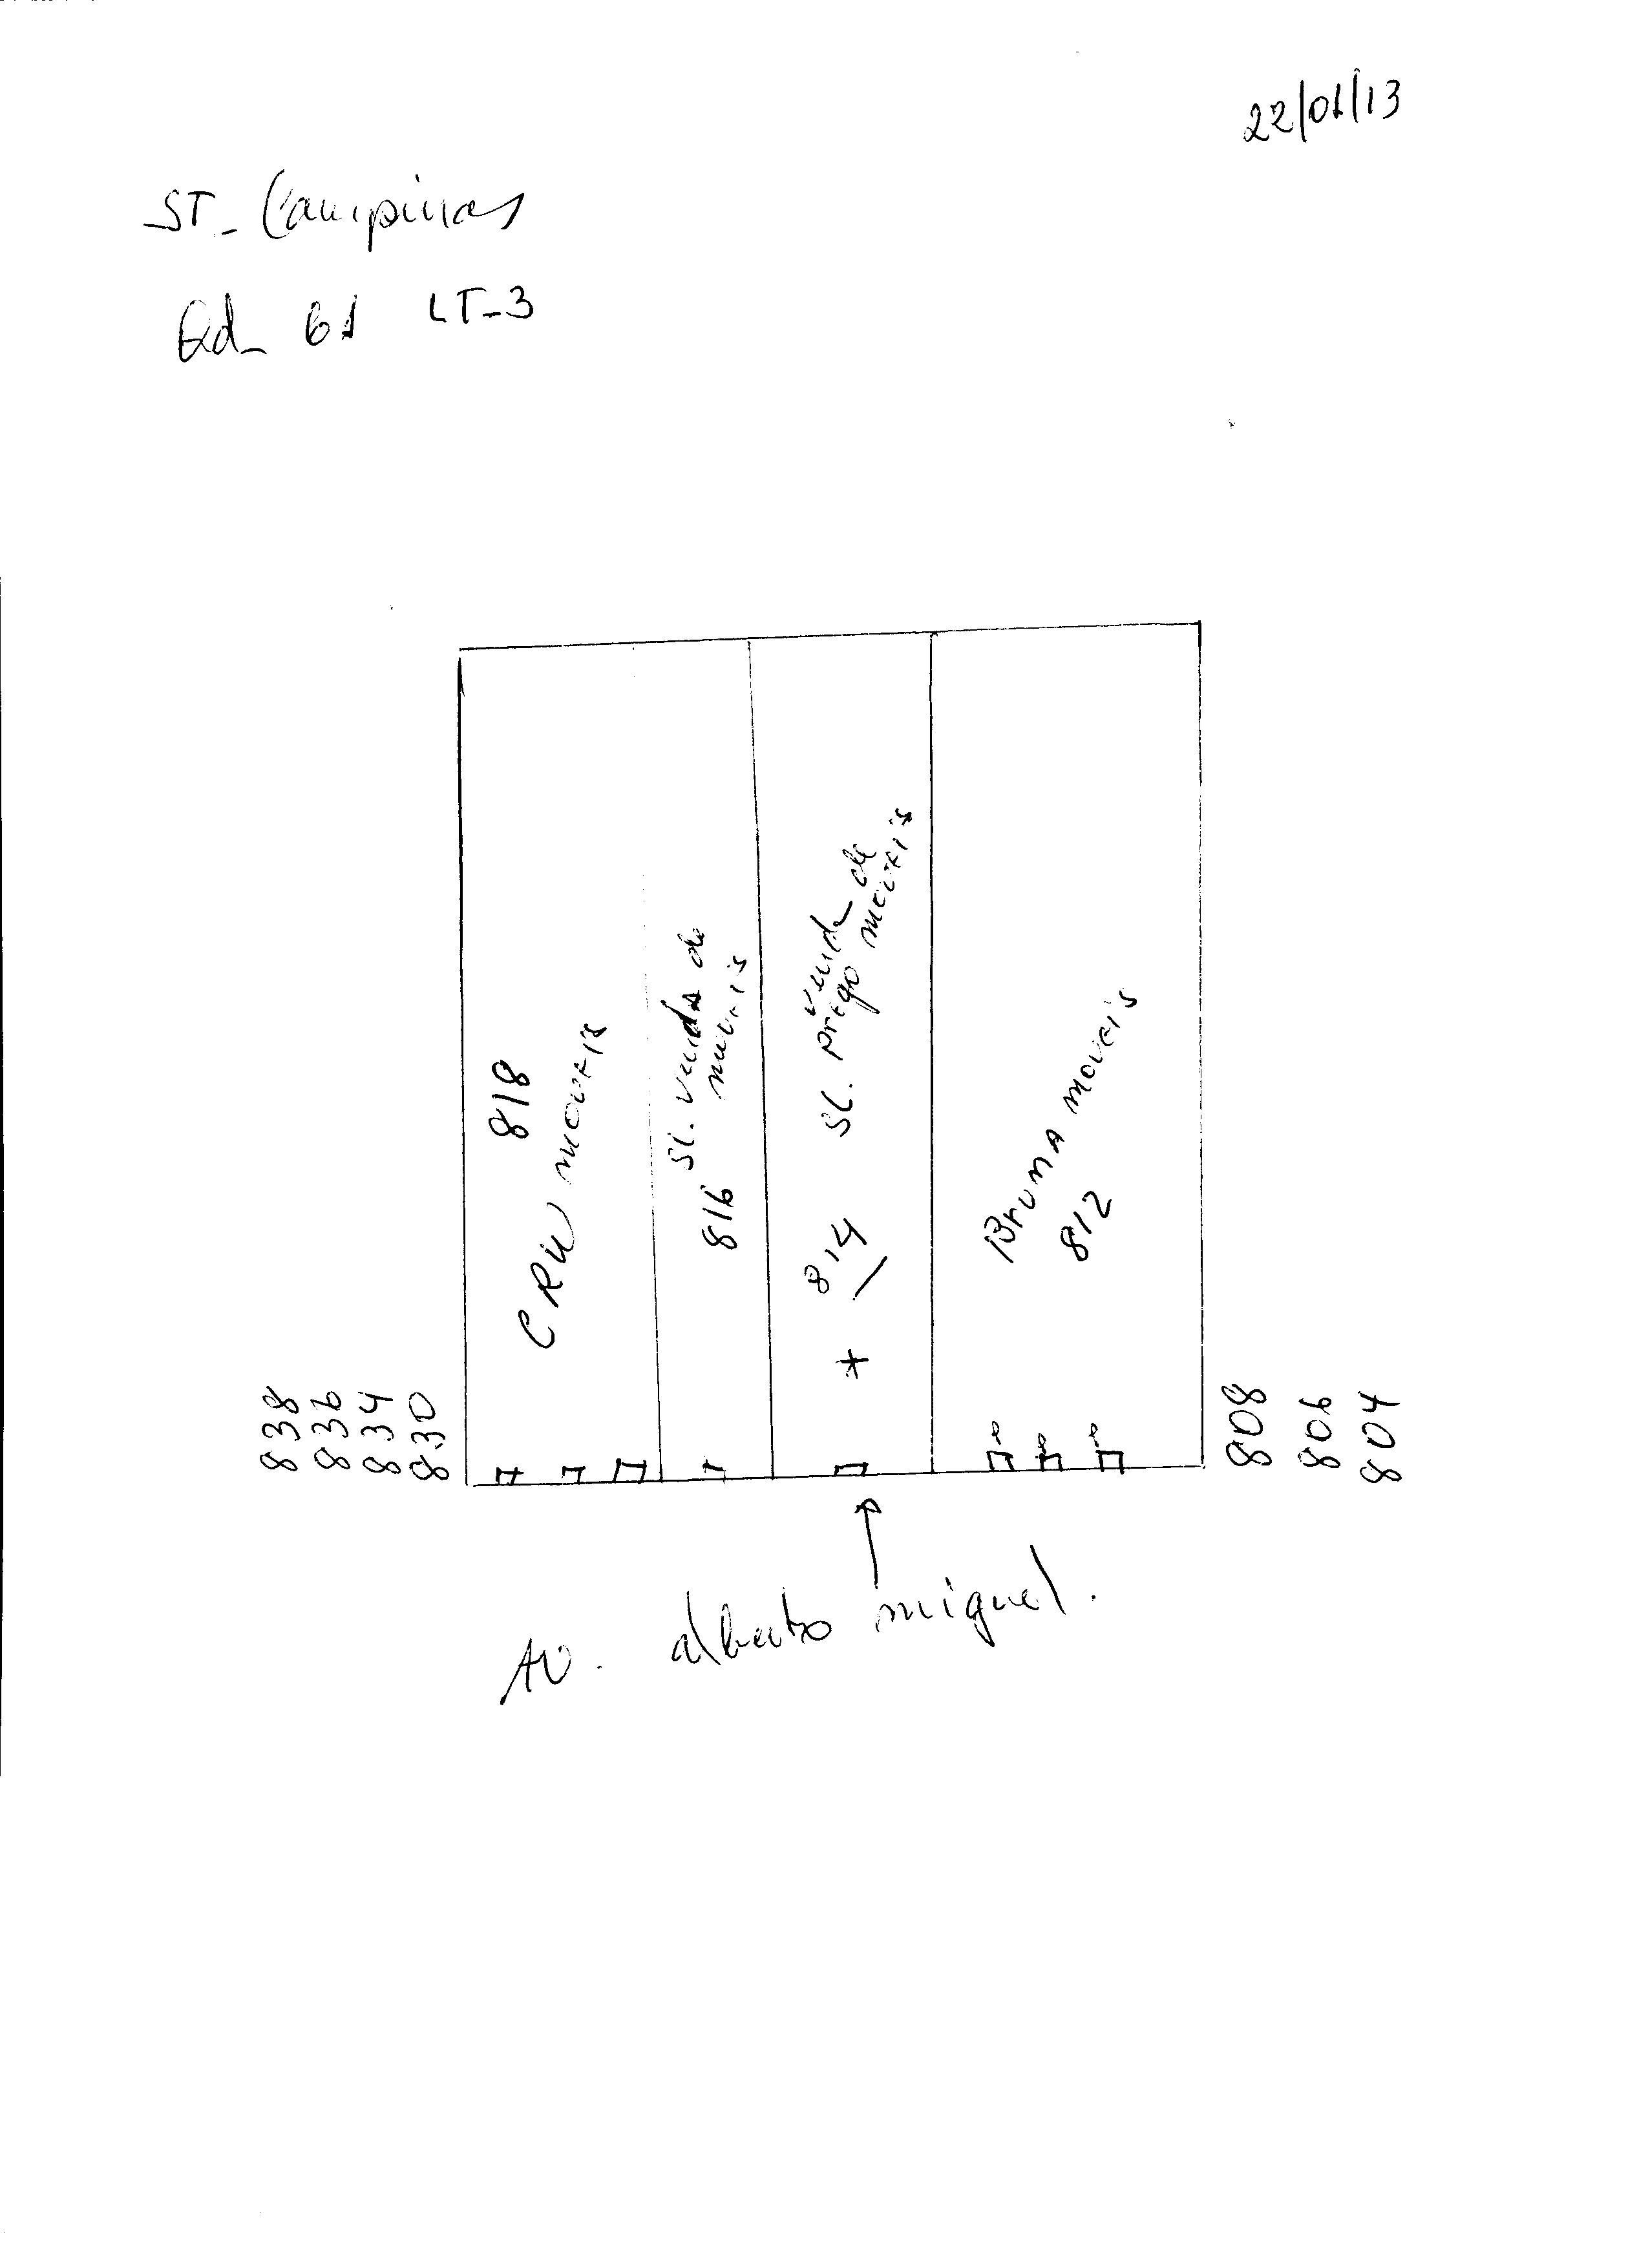 22/01/13
ST- Campinas
Qd- 61 LT-3
818
CRIU moveis
Sl. venda de
moveis
816
venda de
Sl. prego moveis
814
Bruna moveis
812
838
836
834
830
808
806
804
Av. alberto miguel.